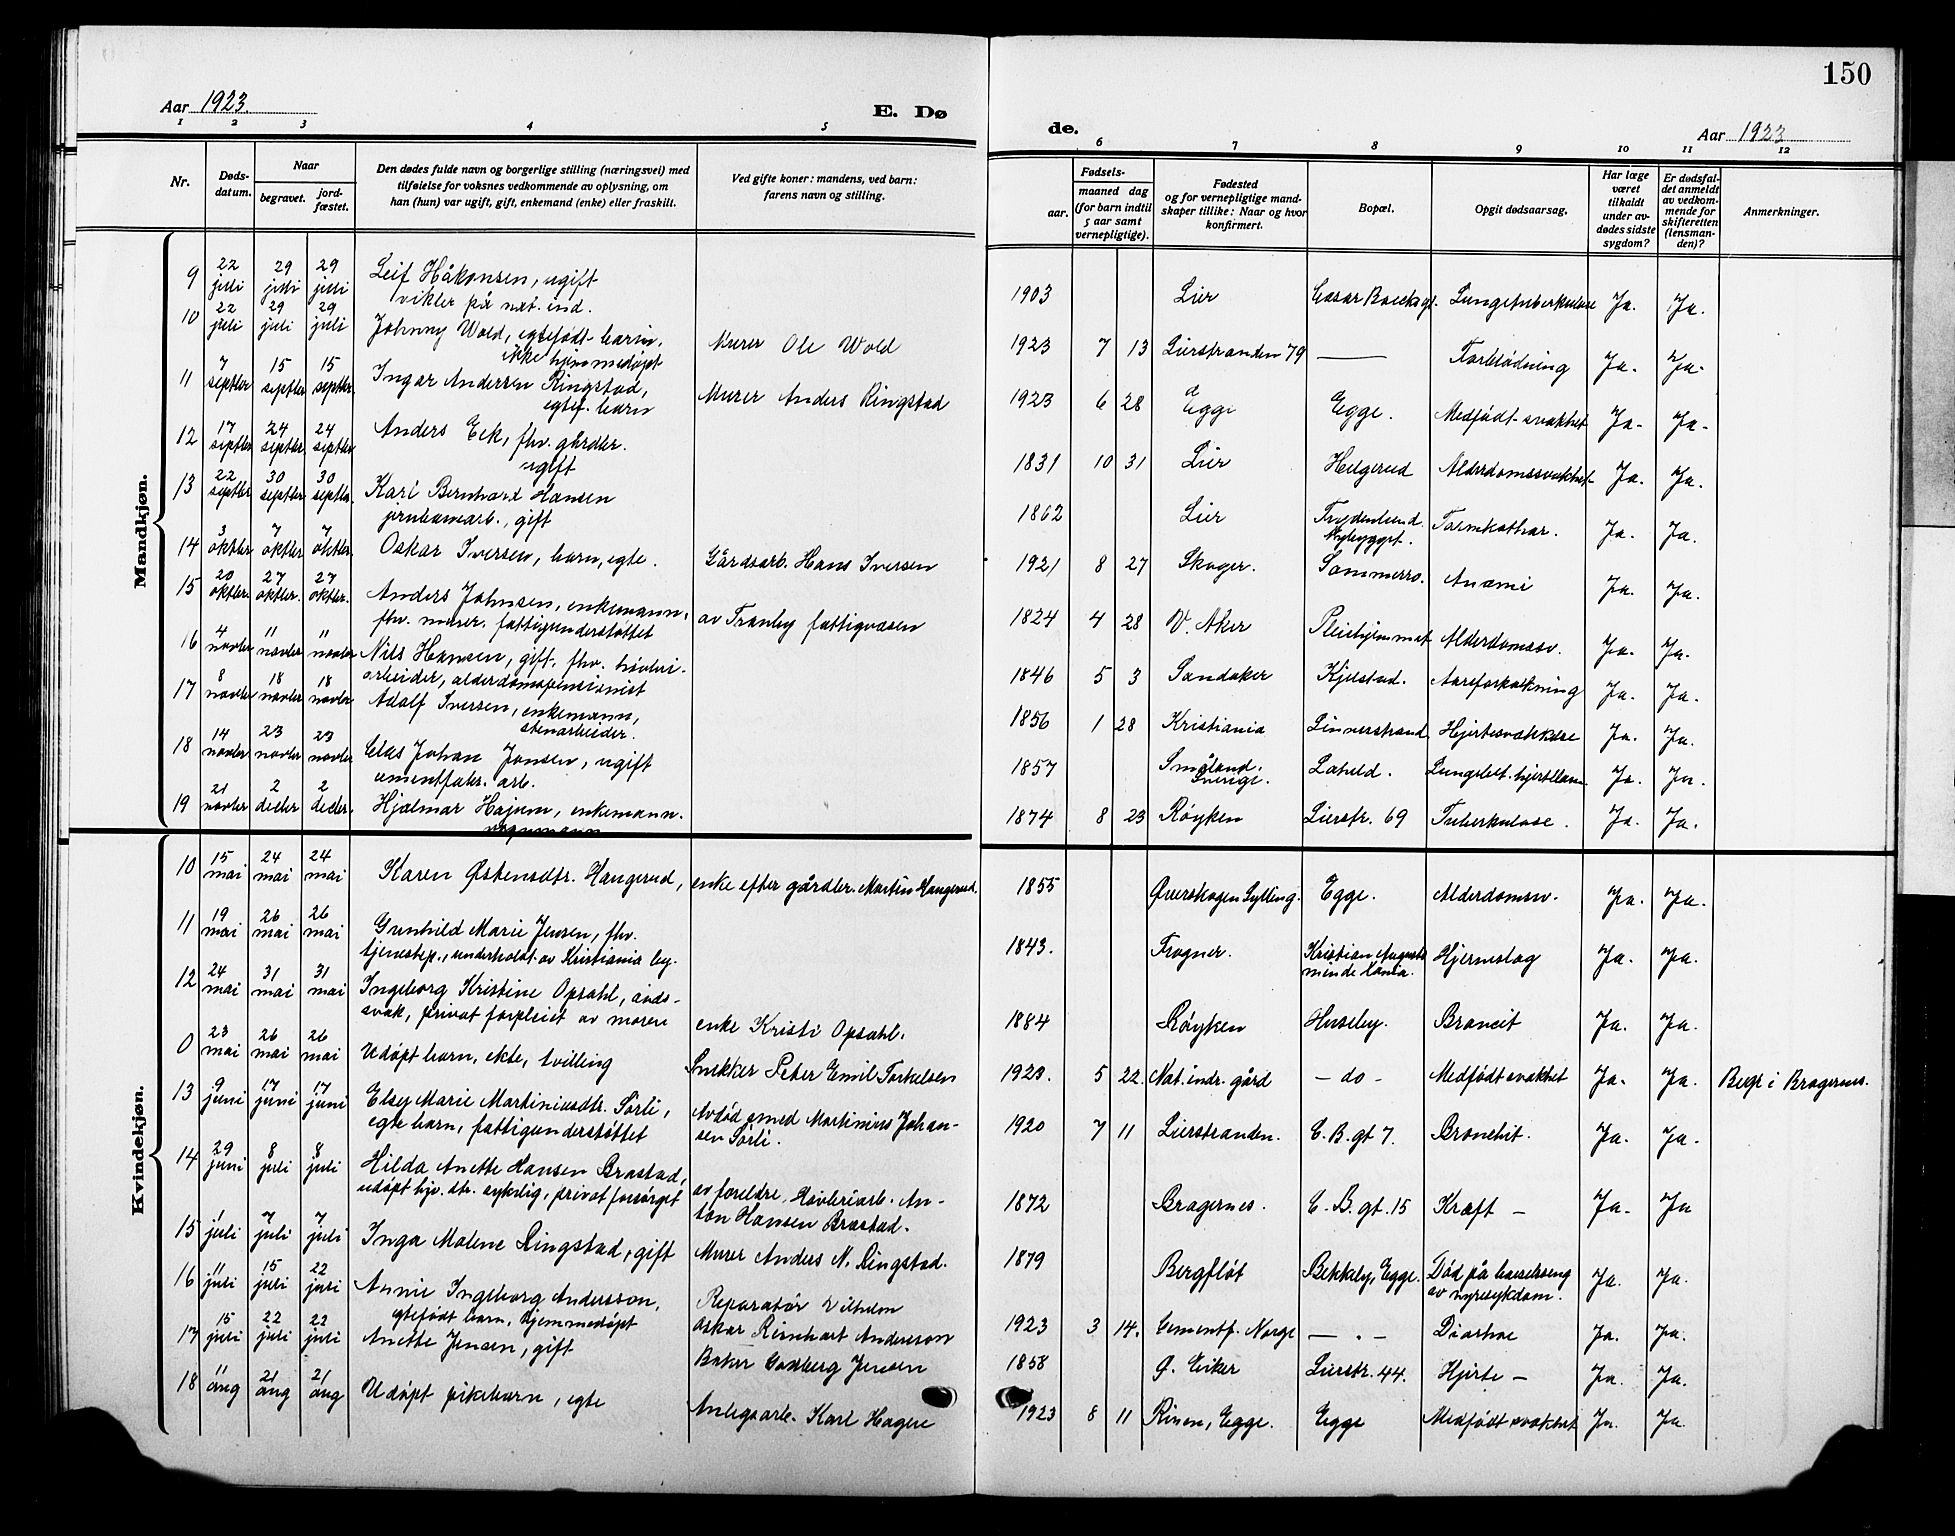 150
Aar 1923.
E. Dø
de.
Aar 1923
1 2 3 4 5
6 7 8 9 10 11 12
Nr.
Døds-
datum.
Naar
begravet.
jord-
fæstet.
Den dødes fulde navn og borgerlige stilling (næringsvei) med
tilføielse for voksnes vedkommende av oplysning, om
han (hun) var ugift, gift, enkemand (enke) eller fraskilt.
Ved gifte koner: mandens, ved barn:
farens navn og stilling.
Fødsels-
aar.
maaned dag
(for barn indtil
5 aar samt
vernepligtige).
Fødested
og for vernepligtige mand-
skaper tillike: Naar og hvor
konfirmert.
Bopæl.
Opgit dødsaarsag.
Har læge
været
tilkaldt
under av-
dødes sidste
sygdom?
Er dødsfal-
det anmeldt
av vedkom-
mende for
skifteretten
(lensman-
den)?
Anmerkninger.
Mandkjøn.
9 22 juli 29 juli 29 juli Leif Håkonsen, ugift
vikler på nat. ind.
1903 Lier Lungetuberkulose Ja. Ja.
10 22 juli 29 juli 29 juli Johnny Wold, egtefødt barn,
ikke hjemmedøpt
Murer Ole Wold 1923 7 13 Lierstranden 79 — Forblødning Ja. Ja.
11 7 septbr 15 septbr 15 septbr. Ingar Andersen Ringstad,
egtef. barn
Murer Anders Ringstad 1923 6 28 Egge Egge. Medfødt svakhet Ja. Ja.
12 17 septbr 24 septbr. 24 septbr. Anders Eek, fhv. gårdbr.
ugift
1831 10 31 Lier Helgerud Alderdomssvakhet Ja. Ja.
13 22 septbr 30 septbr 30 septbr. Karl Bernhard Hansen
jernbanearb., gift
1862 Lier Frydenlund
Nybygget. Tarmkathar. Ja. Ja.
14 3 oktbr 7 oktbr 7 oktbr. Oskar Iversen, barn, egte. Gårdsarb. Hans Iversen 1921 8 27 Skoger. Sommerro. Anæmi Ja. Ja.
15 20 oktbr. 27 oktbr. 27 oktbr. Anders Johnsen, enkemann,
fhv. murer, fattigunderstøttet
av Tranby fattigvæsen 1824 4 28 V. Aker Pleiehjemmet Alderdomssv. Ja. Ja.
16 4 novbr 11 novbr 11 novbr Nils Hansen, gift, fhv. høvleri-
arbeider, alderdomspensionist
1846 5 3 Sandaker Kjelstad. Aareforkalkning Ja. Ja.
17 8 novbr 18 novbr 18 novbr. Adolf Iversen, enkemann,
stenarbeider.
1856 1 28 Kristiania Linnerstrand Hjertesvækkelse Ja. Ja.
18 14 novbr 23 novbr 23 novbr. Claes Johan Jonsen, ugift
cementfabr. arb.
1857 Småland.
Sverige. Ja. Ja.
19 21 novbr 2 decbr 2 decbr. Hjalmar Hajum, enkemann.
vognmann
1874 8 23 Røyken Lierstr. 69 Tuberkulose. Ja. Ja.
Kvindekjøn.
10 15 mai 24 mai 24 mai Karen Østensdtr. Haugerud, enke efter gårdbr. Martin Haugerud. 1855 Øverskogen Sylling. Egge. Alderdomsv. Ja. Ja.
11 19 mai 26 mai 26 mai Gunhild Marie Jensen, fhv.
tjenestep., underholdt av Kristiania by.
1843. Frogner. Kristian August
minde Hjerneslag Ja. Ja.
12 24 mai 31 mai 31 mai Ingeborg Kristine Opsahl, ånds-
svak, privat forpleiet av moren
enke Kristi Opsahl. 1884 Røyken Huseby. Broncit Ja. Ja.
0 23 mai 26 mai 26 mai Udøpt barn, ekte, tvilling Snekker Peter Emil Torkelsen 1923. 5 22. Nat. indr. gård — do — Medfødt svakhet Ja. Ja. Begr. i Bragernes.
13 9 juni 17 juni 17 juni Elsy Marie Martiniusdtr. Sørli,
egte barn, fattigunderstøttet
Avdød smed Martinius Johan-
sen Sørli. 1920 7 11 Lierstranden. C. B. gt 7. Bronchit. Ja. Ja.
14 29 juni 8 juli 8 juli Hilda Anette Hansen Brastad,
udøpt hjv. dtr. sykelig, privat forsørget
av foreldre, Høvleriarb. An-
ton Hansen Brastad. 1872 Bragernes. C. B. gt. 15 Kræft — Ja. Ja
15 1 juli 7 juli 7 juli Inga Malene Ringstad, gift Murer Anders N. Ringstad. 1879 Bergfløt Bekkely, Egge. Død på barselseng
av nyresykdom. Ja. Ja.
16 11 juli 15 juli 22 juli Annie Ingeborg Andersson,
egtefødt barn, hjemmedøpt
Reparatør Vilhelm
Oskar Reinhart Andersson 1923 3 14. Cementf. Norge — " — Diarhoe Ja. Ja.
17 15 juli 22 juli 22 juli Anette Jensen, gift Baker Jensen 1858 Ø. Eiker Lierstr. 44. Hjerte — Ja. Ja.
18 11 aug 21 aug 21 aug Udøpt pikebarn, egte Anlegsarb. Karl Hagen 1923 8 11 Rinen, Egge. Egge Medfødt svakhet Ja. Ja.